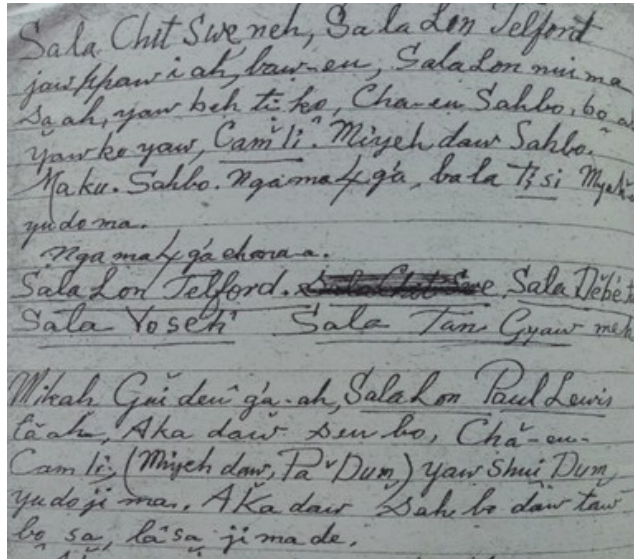 Sala Chit Swe neh, Sala Lon Telford
jaw ppaw i ah, baw-eu, Sala Lon mui ma
sa ah, yaw beh ti ko, Cha-eu Sahbo, bo a
Yaw ko yaw, Camˇliˆ. Miyeh daw Sahbo.
Maku. Sahbo. Nga ma 4 gˇa, ba la Ti si
yu do ma.
Nga ma 4 gˇa
Sala Lon Telford. Sala
Sala Yoseh Sala Tan Gyaw meh
Mikah Guǐ deuˆ gˇa-ah, Sala Lon Paul Lewis
ah, Aka dawˇ seu bo, Chǎ-eu-
Cam li, (Miyeh daw, Paˇ Dum,) yaw Shuǐ Dum,
yu do ji ma. Aǩa daw Sahˇbo daw taw
bo sa, lâ sa ji ma de.